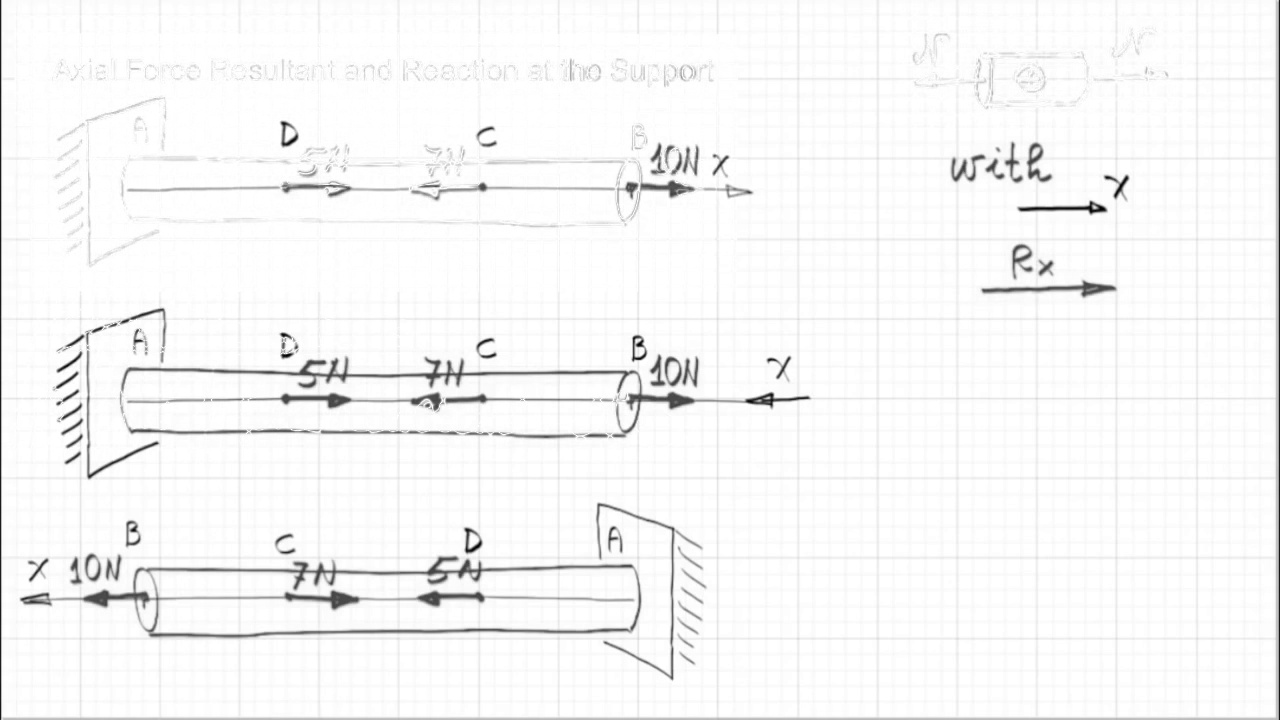 Axial Force Resultant and Reaction at the Support
N N
A D 5N 7N C B 10N x
with x
Rx
A D 5N 7N C B 10N x
x 10N B C 7N 5N D A